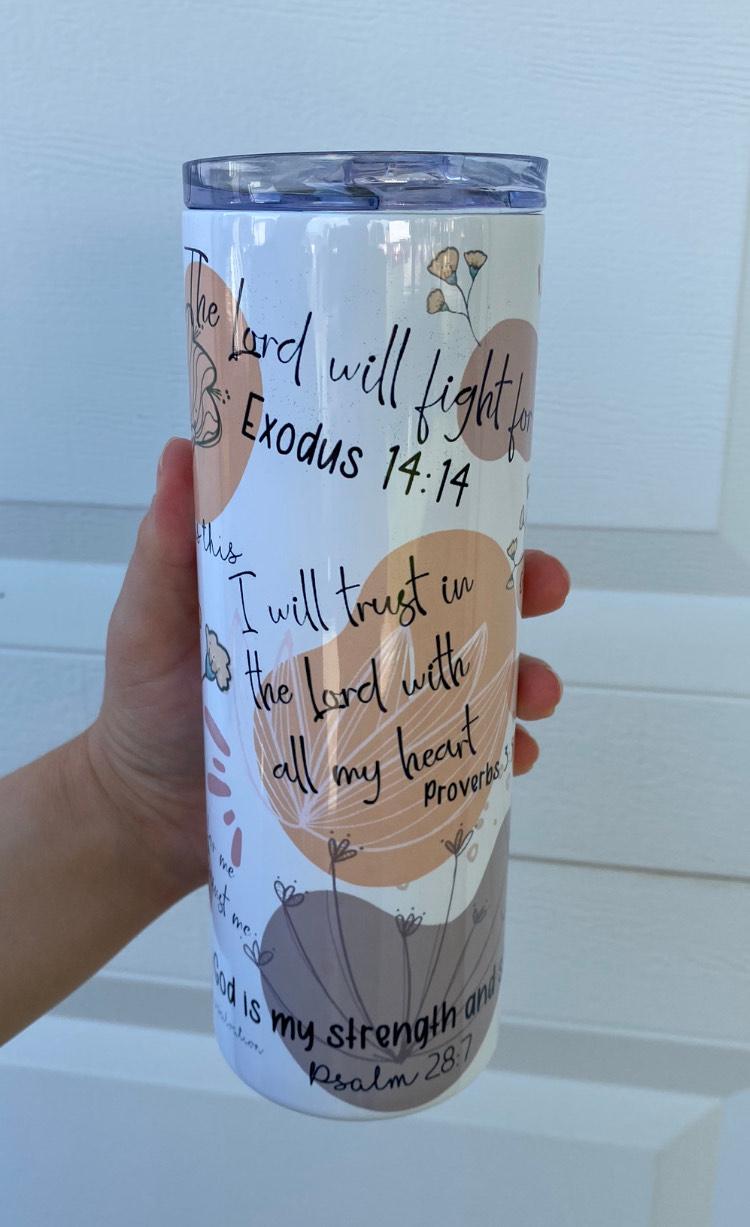 The Lord will fight for
Exodus 14:14
this
I will trust in
the Lord with
all my heart
Proverbs 3:
me
me.
God is my strength and
Psalm 28:7